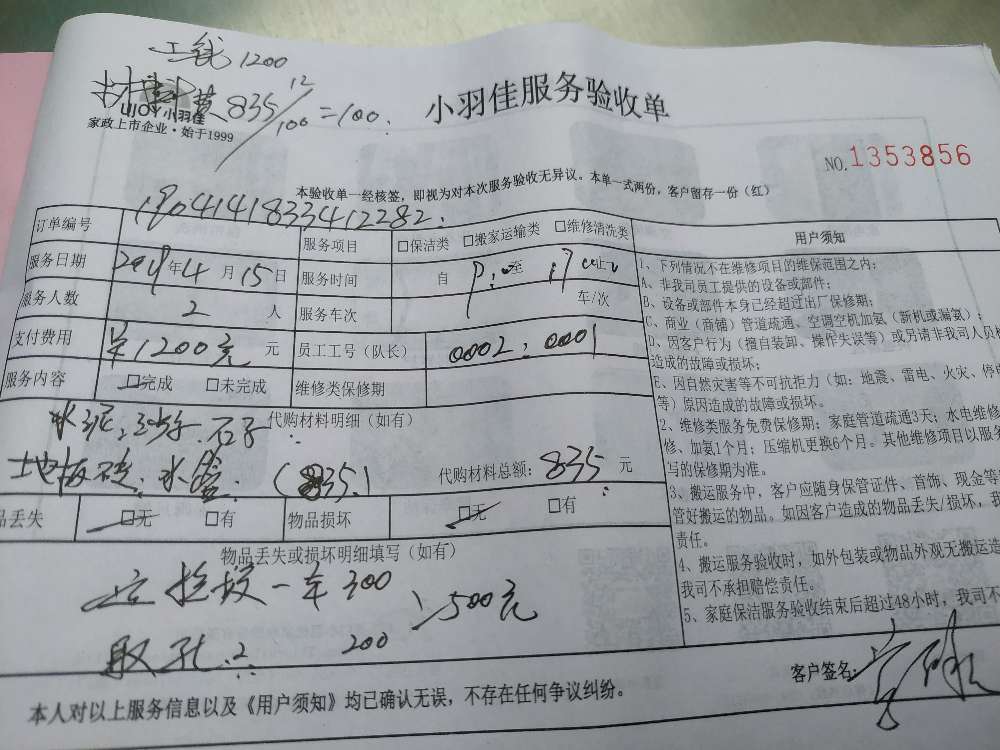 工钱 1200
835 12/100 =100.
UJOY 小羽佳
家政上市企业·始于1999
小羽佳服务验收单
NO.1353856
本验收单一经核签，即视为对本次服务验收无异议。本单一式两份，客户留存一份（红）
订单编号 1904141833412282.
服务项目 □保洁类 □搬家运输类 □维修清洗类
服务日期 2019年4月15日
服务时间 自 至 止
服务人数 2 人
服务车次 车/次
支付费用 1200元 元
员工工号（队长） 0002; 0001
服务内容 □完成 □未完成
维修类保修期
代购材料明细（如有）
水泥,沙子.石子
地板砖.水
(835)
代购材料总额：835 元
品丢失 □无 □有
物品损坏 □无 □有
物品丢失或损坏明细填写（如有）
一车 300
500元
取孔 2 200
本人对以上服务信息以及《用户须知》均已确认无误，不存在任何争议纠纷。
用户须知
1、下列情况不在维修项目的维保范围之内：
A、非我司员工提供的设备或部件；
B、设备或部件本身已经超过出厂保修期；
C、商业（商铺）管道疏通、空调空机加氨（新机或漏氨）；
D、因客户行为（擅自装卸、操作失误等）或另请非我司人员
造成的故障或损坏；
E、因自然灾害等不可抗拒力（如：地震、雷电、火灾、停电
等）原因造成的故障或损坏。
2、维修类服务免费保修期：家庭管道疏通3天；水电维修
修、加氨1个月；压缩机更换6个月。其他维修项目以服务
写的保修期为准。
3、搬运服务中，客户应随身保管证件、首饰、现金等
管好搬运的物品。如因客户造成的物品丢失/损坏，我
责任。
4、搬运服务验收时，如外包装或物品外观无搬运造
我司不承担赔偿责任。
5、家庭保洁服务验收结束后超过48小时，我司不
客户签名: